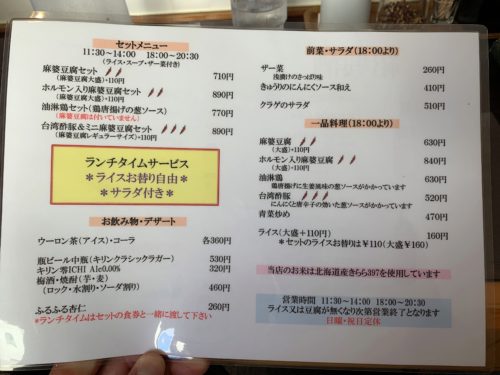 セットメニュー
11:30～14:00 18:00～20:30
(ライス・スープ・ザー菜付き)
麻婆豆腐セット 710円
(麻婆豆腐大盛)+110円
ホルモン入り麻婆豆腐セット 890円
(麻婆豆腐大盛)+110円
油淋鶏セット(鶏唐揚げの葱ソース) 770円
(麻婆豆腐は付いていません)
台湾酢豚&ミニ麻婆豆腐セット 890円
(麻婆豆腐レギュラーサイズ)+110円
ランチタイムサービス
*ライスお替り自由*
*サラダ付き*
お飲み物・デザート
ウーロン茶(アイス)・コーラ 各360円
瓶ビール中瓶(キリンクラシックラガー) 530円
キリン零ICHI Alc0.00% 320円
梅酒・焼酎(芋・麦)
(ロック・水割り・ソーダ割り) 460円
ふるふる杏仁 260円
*ランチタイムはセットの食券と一緒に流して下さい
前菜・サラダ(18:00より)
ザー菜 260円
浅漬けのさっぱり味
きゅうりのにんにくソース和え 410円
クラゲのサラダ 510円
一品料理(18:00より)
麻婆豆腐 630円
(大盛)+110円
ホルモン入り麻婆豆腐 840円
(大盛)+110円
油淋鶏 630円
鶏唐揚げに生姜風味の葱ソースがかかっています
台湾酢豚 520円
にんにくと唐辛子の効いた葱ソースがかかっています
青菜炒め 470円
ライス(大盛+110円) 160円
*セットのライスお替りは¥110(大盛¥160)
当店のお米は北海道産きらら397を使用しています
営業時間 11:30～14:00 18:00～20:30
ライス又は豆腐が無くなり次第営業終了となります
日曜・祝日定休